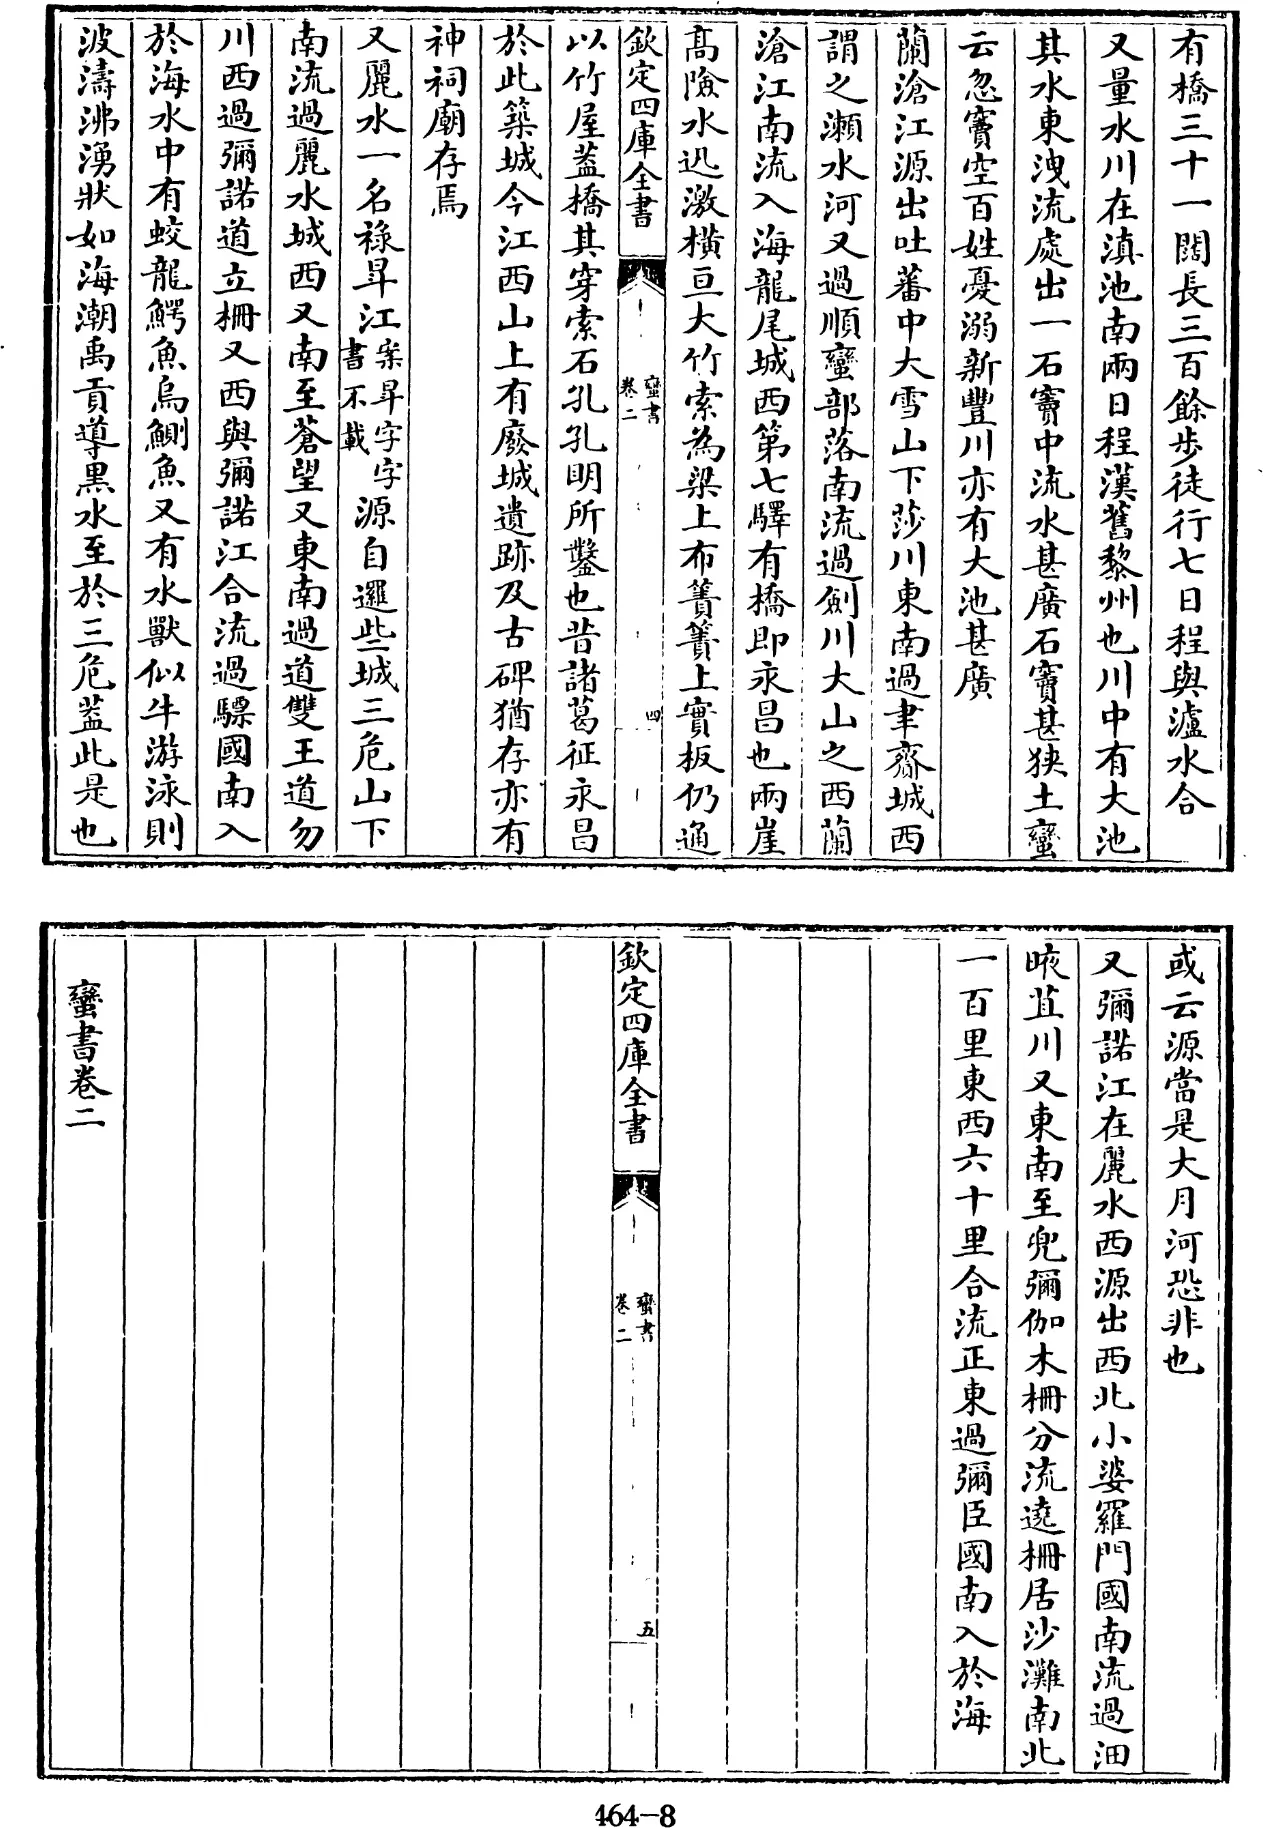 有橋三十一闊長三百餘步徒行七日程與瀘水合
又量水川在滇池南兩日程漢舊黎州也川中有大池
其水東洩流處出一石竇中流水甚廣石竇甚狹土蠻
云忽竇空百姓憂溺新豐川亦有大池甚廣
蘭滄江源出吐蕃中大雪山下莎川東南過聿齋城西
謂之瀨水河又過順蠻部落南流過劍川大山之西蘭
滄江南流入海龍尾城西第七驛有橋即永昌也兩崖
高險水迅激橫亘大竹索為梁上布簀簀上實板仍通
欽定四庫全書
蠻書
卷二
四
以竹屋蓋橋其穿索石孔孔明所鑿也昔諸葛征永昌
於此築城今江西山上有廢城遺跡及古碑猶存亦有
神祠廟存焉
又麗水一名祿㫒江案㫒字字書不載源自邏些城三危山下
南流過麗水城西又南至蒼望又東南過道雙王道勿
川西過彌諾道立柵又西與彌諾江合流過驃國南入
於海水中有蛟龍鰐魚烏鰂魚又有水獸似牛游泳則
波濤沸湧狀如海潮禹貢導黑水至於三危蓋此是也
或云源當是大月河恐非也
又彌諾江在麗水西源出西北小婆羅門國南流過㳙
㫊苴川又東南至兜彌伽木柵分流遶柵居沙灘南北
一百里東西六十里合流正東過彌臣國南入於海
欽定四庫全書
蠻書
卷二
五
蠻書卷二
464-8